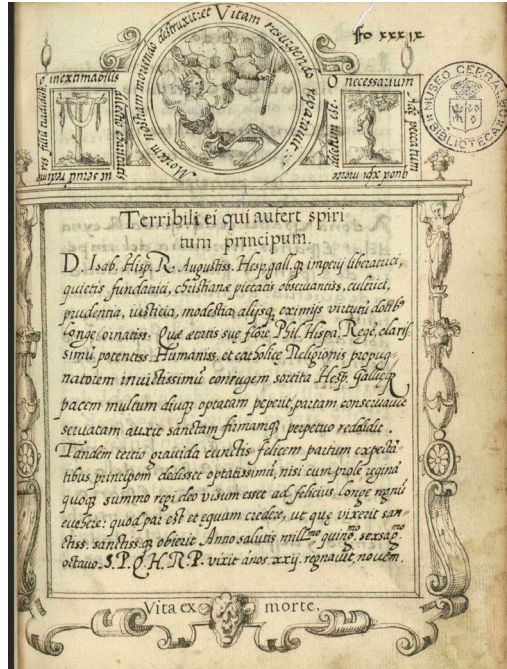 fo xxxix
Mortem nostram moriendo destruxit: et Vitam resurgendo reparauit
O inextimabilis
dilectio charitatis
ut seruū redim
res filiū tradidisti
O necessarium
Ade pecatum
quod xp̄i morte
deletum est
MUSEO CERRALBO
BIBLIOTECA
Terribili ei qui aufert spiri
tum principum.
D. Isab. Hisp. R. Augustiss. Hesp. gall. q̨ imperij liberatrici,
quietis fundatrici, christianæ pietatis obseruantiss. cultrici,
prudentia, iusticia, modestia alijsq̨ eximijs virtutū dotib⁹
longe ornatiss. Quæ ætatis suę flore Phil. Hispa. Regē, clariſ
simū potentiss. Humaniss. et catholice Religionis propug-
natorem inuictissimū coniugem sortita Hesp. Galliæq̨
pacem multum diuq̨ optatam peperit, partam conseruauit
seruatam auxit sanctam firmamq̨ perpetuo reddidit.
Tandem tertio grauida cunctis felicem partum expectā
tibus, principem dedisset optatissimū, nisi cum prole reginā
quoq̨ summo regi deo visum esset ad felicius longe regnū
euehere: quod par est et equum credere, ut quę vixerit san-
ctiss. sanctiss. q̨ obierit Anno salutis mill.mo quing.mo sexsag.mo
octauo. S. P. Q. H. R. P. vixit ános. xxij. regnauit, nouem.
Vita ex morte.